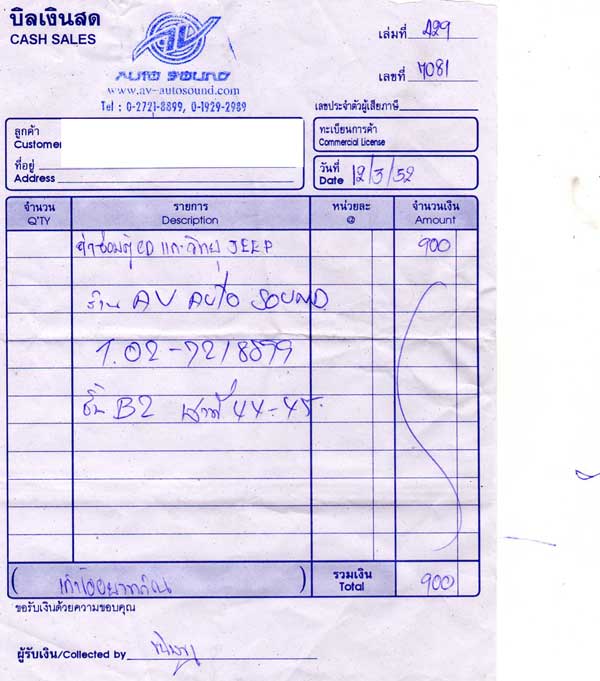 บิลเงินสด
CASH SALES
AV
AUTO SOUND
www.av-autosound.com
Tel : 0-2721-8899, 0-1929-2989
เล่มที่ 429
เลขที่ 7081
เลขประจำตัวผู้เสียภาษี
ลูกค้า
Customer
ที่อยู่
Address
ทะเบียนการค้า
Commercial License
วันที่
Date 12/3/52
จำนวน รายการ หน่วยละ จำนวนเงิน
Q'TY Description @ Amount
ค่าซ่อมตู้ CD และวิทยุ JEEP 900
ร้าน AV AUTO SOUND
T. 02-7218899
ชั้น B2 เสาที่ 44-45
( เก้าร้อยบาทถ้วน ) รวมเงิน 900
Total
ขอรับเงินด้วยความขอบคุณ
ผู้รับเงิน/Collected by